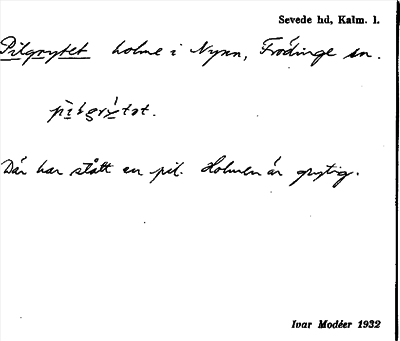 Sevede hd, Kalm. l.
Pilgrytet holme i Nynn, Frödinge sn.
pìlgrýtət.
Där har stått en pil. Holmen är grytig.
Ivar Modéer 1932